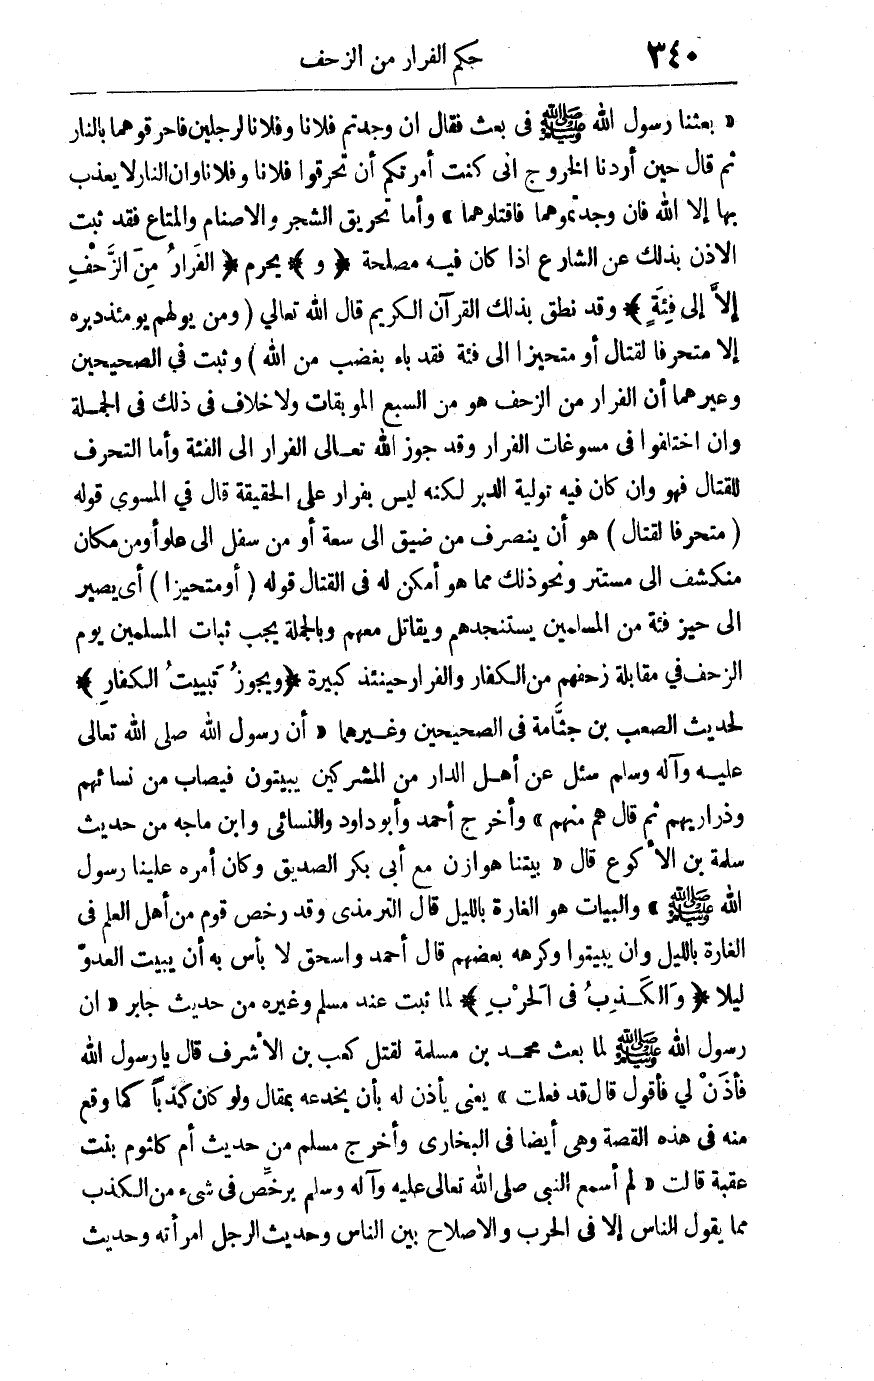 ٣٤٠ حكم الفرار من الزحف
« بعثنا رسول الله ﷺ فى بعث فقال ان وجدتم فلانا وفلانا لرجلين فاحرقوهما بالنار
ثم قال حين أردنا الخروج انى كنت أمرتكم أن تحرقوا فلانا وفلانا وان النار لا يعذب
بها إلا الله فان وجدتموهما فاقتلوهما » وأما تحريق الشجر والاصنام والمتاع فقد ثبت
الاذن بذلك عن الشارع اذا كان فيه مصلحة ﴿ و ﴾ يحرم ﴿ الفَرارُ مِنَ الزَّحْفِ
إلاَّ إلى فِئَةٍ ﴾ وقد نطق بذلك القرآن الكريم قال الله تعالي ( ومن يولهم يومئذ دبره
إلا متحرفا لقتال أو متحيزا الى فئة فقد باء بغضب من الله ) وثبت في الصحيحين
وعيرهما أن الفرار من الزحف هو من السبع الموبقات ولا خلاف فى ذلك فى الجملة
وان اختلفوا فى مسوغات الفرار وقد جوز الله تعالى الفرار الى الفئة وأما التحرف
للقتال فهو وان كان فيه تولية الدبر لكنه ليس بفرار على الحقيقة قال في المسوي قوله
( متحرفا لقتال ) هو أن ينصرف من ضيق الى سعة أو من سفل الى علو أو من مكان
منكشف الى مستتر ونحو ذلك مما هو أمكن له فى القتال قوله ( أو متحيزا ) أى يصير
الى حيز فئة من المسلمين يستنجدهم ويقاتل معهم وبالجملة يجب ثبات المسلمين يوم
الزحف في مقابلة زحفهم من الكفار والفرار حينئذ كبيرة ﴿ ويجوزُ تَبييتُ الكفارِ ﴾
لحديث الصعب بن جثَّامة فى الصحيحين وغيرهما « أن رسول الله صلى الله تعالى
عليه وآله وسلم سئل عن أهل الدار من المشركين يبيتون فيصاب من نسائهم
وذراريهم ثم قال هم منهم » وأخرج أحمد وأبو داود والنسائى وابن ماجه من حديث
سلمة بن الأكوع قال « بيتنا هوازن مع أبى بكر الصديق وكان أمره علينا رسول
الله ﷺ » والبيات هو الغارة بالليل قال الترمذى وقد رخص قوم من أهل العلم فى
الغارة بالليل وان يبيتوا وكرهه بعضهم قال أحمد واسحق لا بأس به أن يبيت العدوّ
ليلا ﴿ وَالكَذِبُ فى الحَرْبِ ﴾ لما ثبت عند مسلم وغيره من حديث جابر « ان
رسول الله ﷺ لما بعث محمد بن مسلمة لقتل كعب بن الأشرف قال يا رسول الله
فأذَنْ لي فأقول قال قد فعلت » يعنى يأذن له بأن يخدعه بمقال ولو كان كذباً كما وقع
منه فى هذه القصة وهى أيضا فى البخارى وأخرج مسلم من حديث أم كلثوم بنت
عقبة قالت « لم أسمع النبى صلى الله تعالى عليه وآله وسلم يرخِّص فى شىء من الكذب
مما يقول الناس إلا فى الحرب والاصلاح بين الناس وحديث الرجل امرأته وحديث